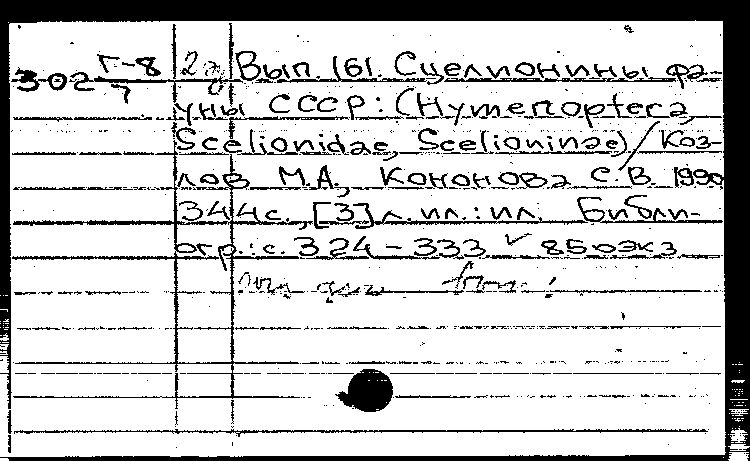 3-02 Г-8/7 2э Вып. 161. Сцелионины фа-
уны СССР: (Hymenoptera,
Scelionidae, Scelioninae)/ Коз-
лов М.А., Кононова С.В. 1990
344с., [3]л.ил.:ил. Библи-
огр.:с. 324-333 ✓ 850экз